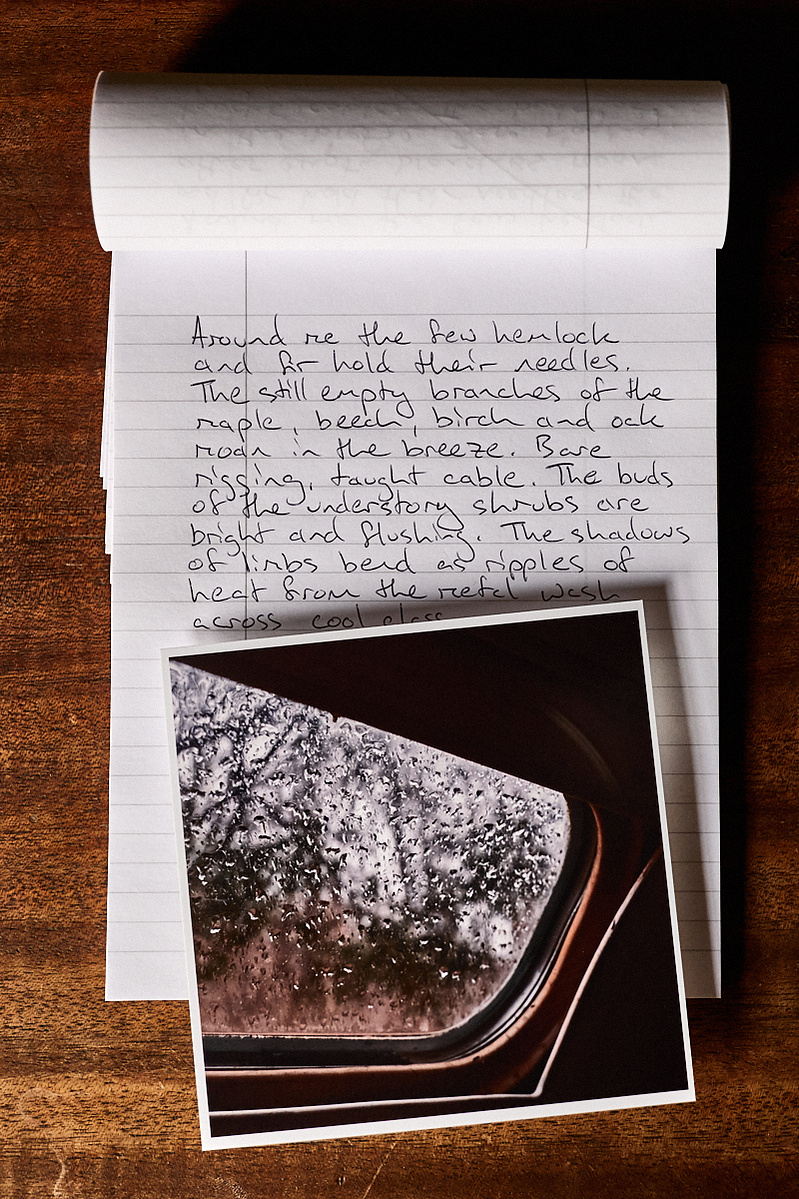 Around me the few hemlock
and fir hold their needles.
The still empty branches of the
maple, beech, birch and oak
moan in the breeze. Bare
rigging, taught cable. The buds
of the understory shrubs are
bright and flushing. The shadows
of limbs bend as ripples of
heat from the metal wash
across cool glass